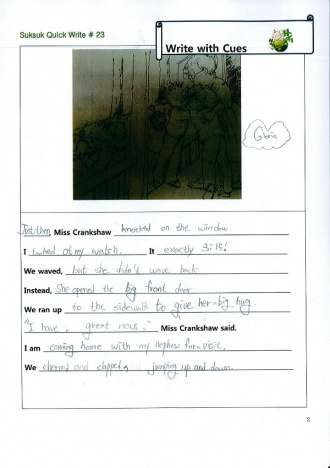 Suksuk Quick Write # 23
Write with Cues
Gloria
Just then, Miss Crankshaw knocked on the window
I looked at my watch. It exactly 3:15!
We waved, but she didn't wave back
Instead, She opened the big front door
We ran up to the sidewalk to give her a big hug.
"I have great news," Miss Crankshaw said.
I am coming home with my nephew for a visit.
We cheered and clapped, jumping up and down.
2